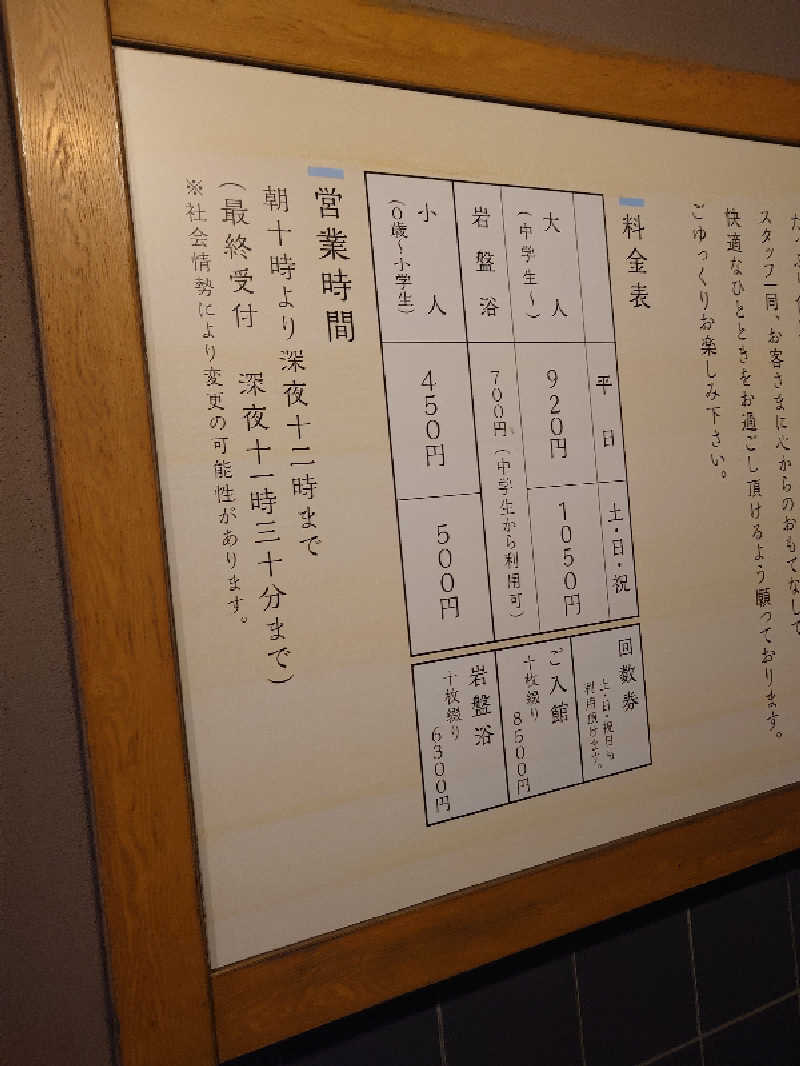 スタッフ一同、お客さまに心からのおもてなしで
快適なひとときをお過ごし頂けるよう願っております。
ごゆっくりお楽しみ下さい。
料金表
平日
土・日・祝
大人
(中学生~)
920円
1050円
岩盤浴
700円 (中学生から利用可)
小人
(0歳~小学生)
450円
500円
回数券
土・日・祝日も
利用頂けます。
ご入館
十枚綴り 8500円
岩盤浴
十枚綴り 6300円
営業時間
朝十時より深夜十二時まで
(最終受付 深夜十一時三十分まで)
※社会情勢により変更の可能性があります。